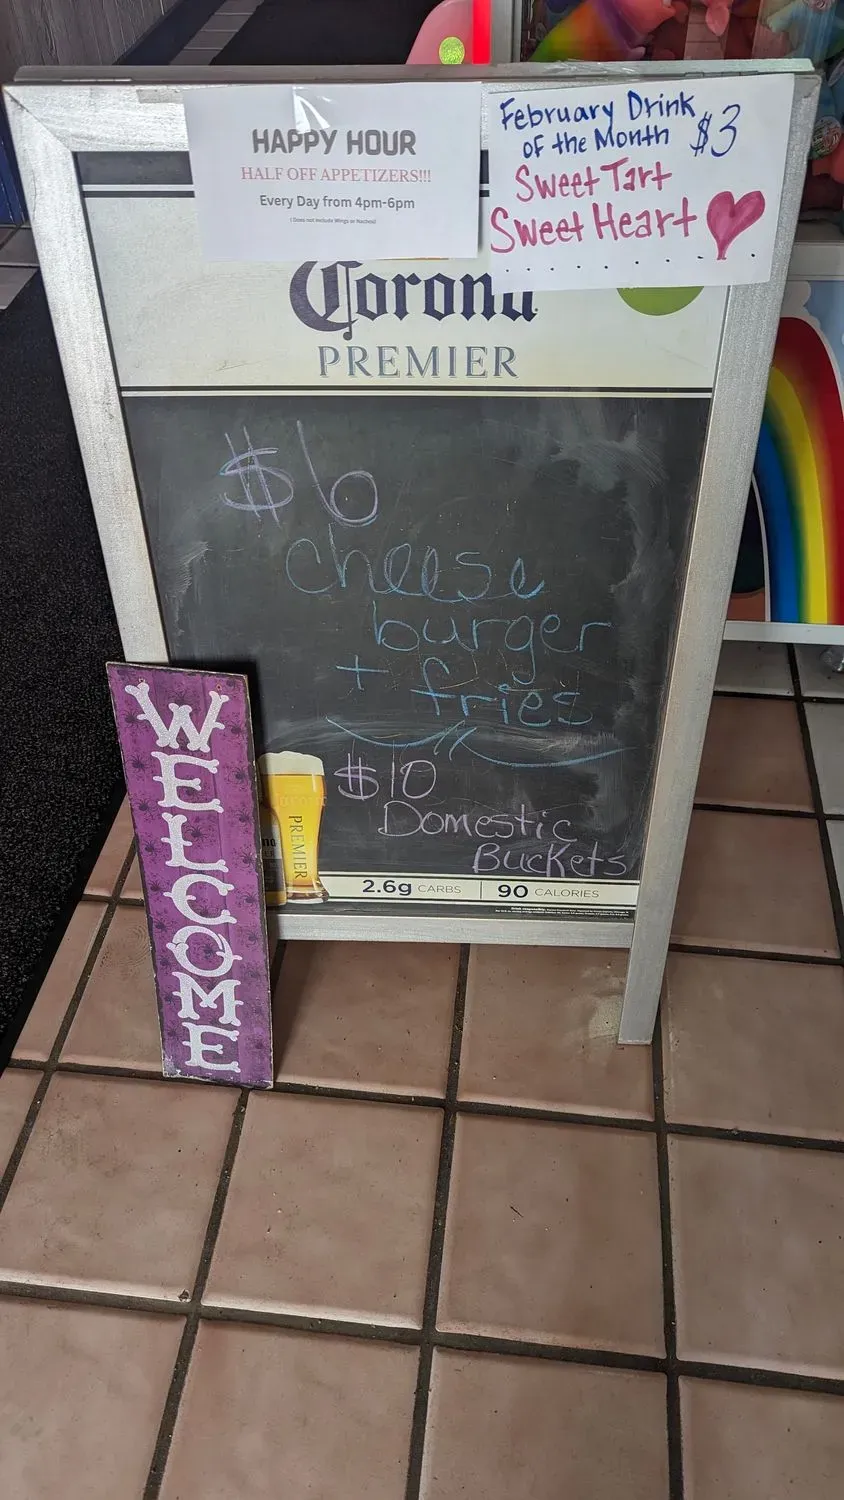 HAPPY HOUR
HALF OFF APPETIZERS!!!
Every Day from 4pm-6pm
( Does not include Wings or Nachos)
February Drink
of the Month $3
Sweet Tart
Sweet Heart
Corona
PREMIER
$6
cheese
burger
+ fries
$10
Domestic
Buckets
PREMIER
2.6g CARBS 90 CALORIES
WELCOME